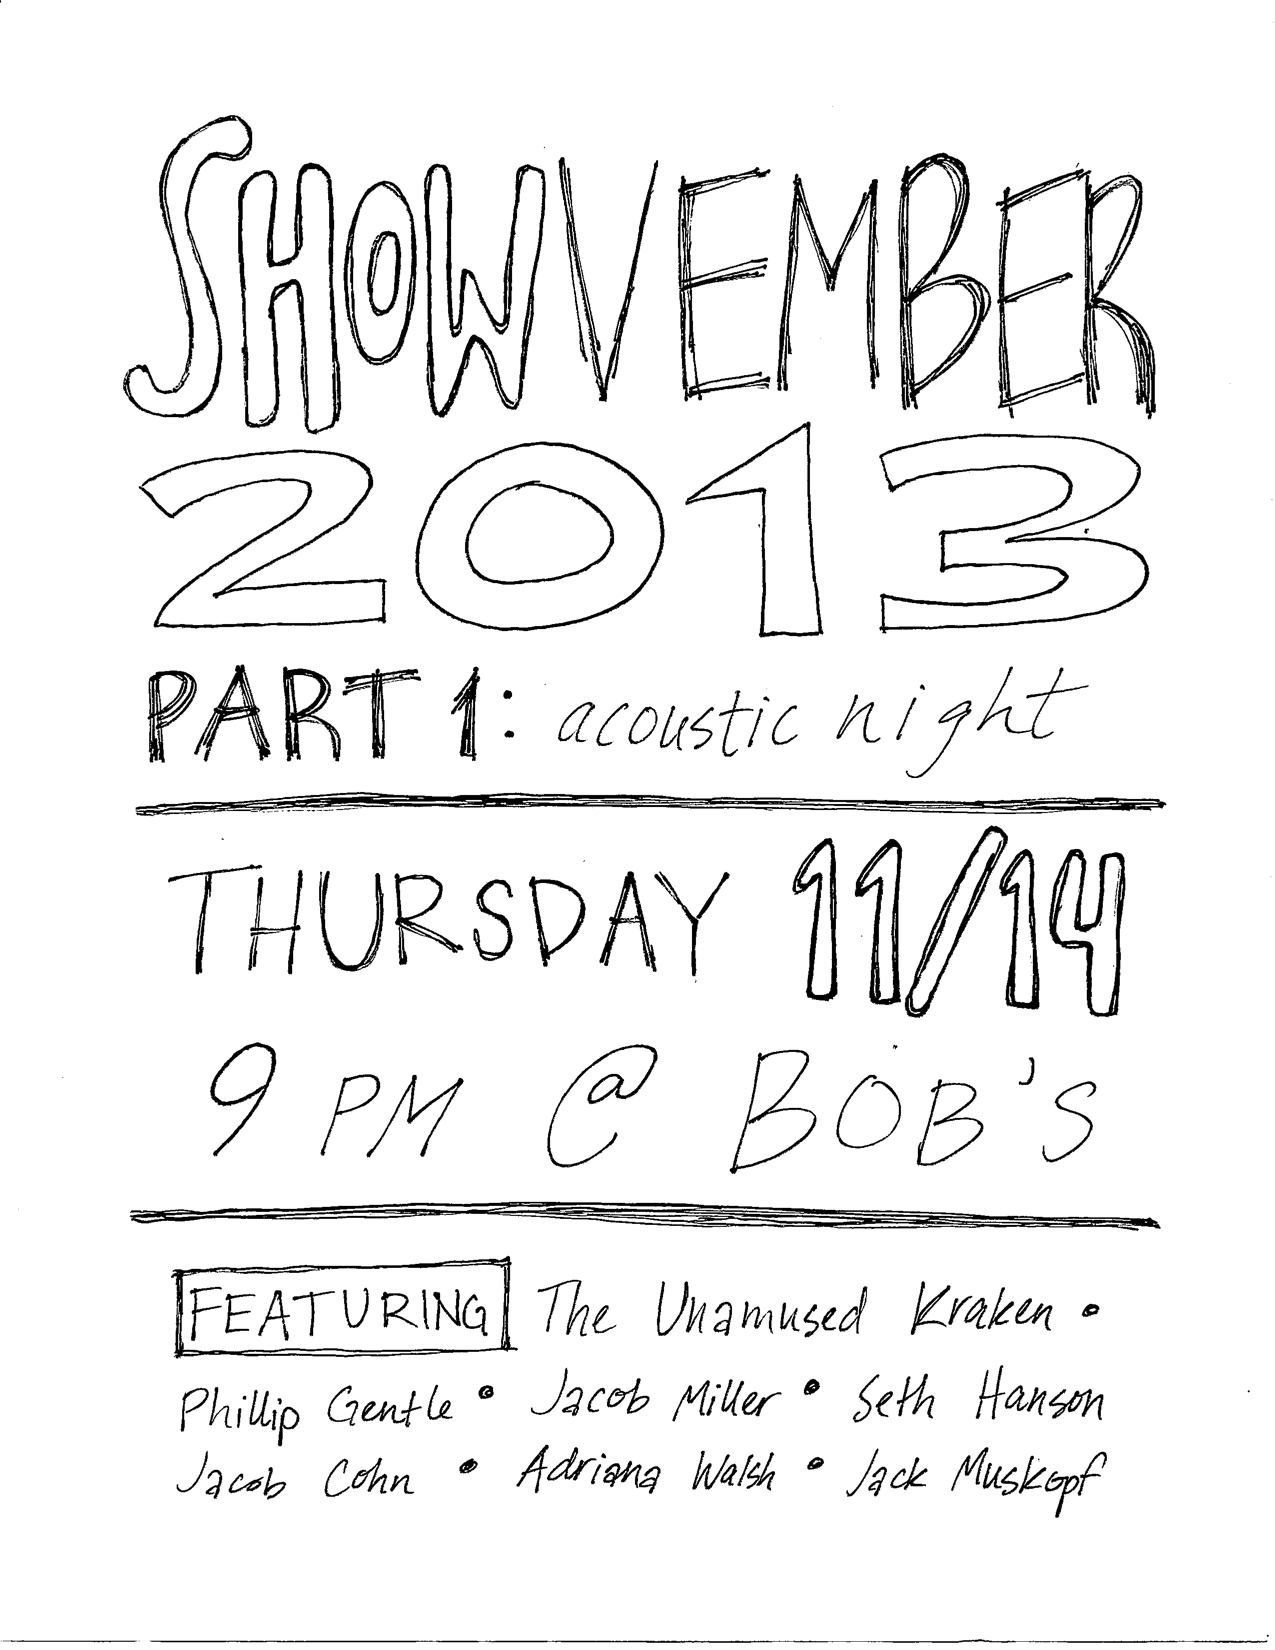 SHOWVEMBER
2013
PART 1: acoustic night
THURSDAY 11/14
9 PM @ BOB'S
FEATURING The Unamused Kraken •
Phillip Gentle • Jacob Miller • Seth Hanson
Jacob Cohn • Adriana Walsh • Jack Muskopf